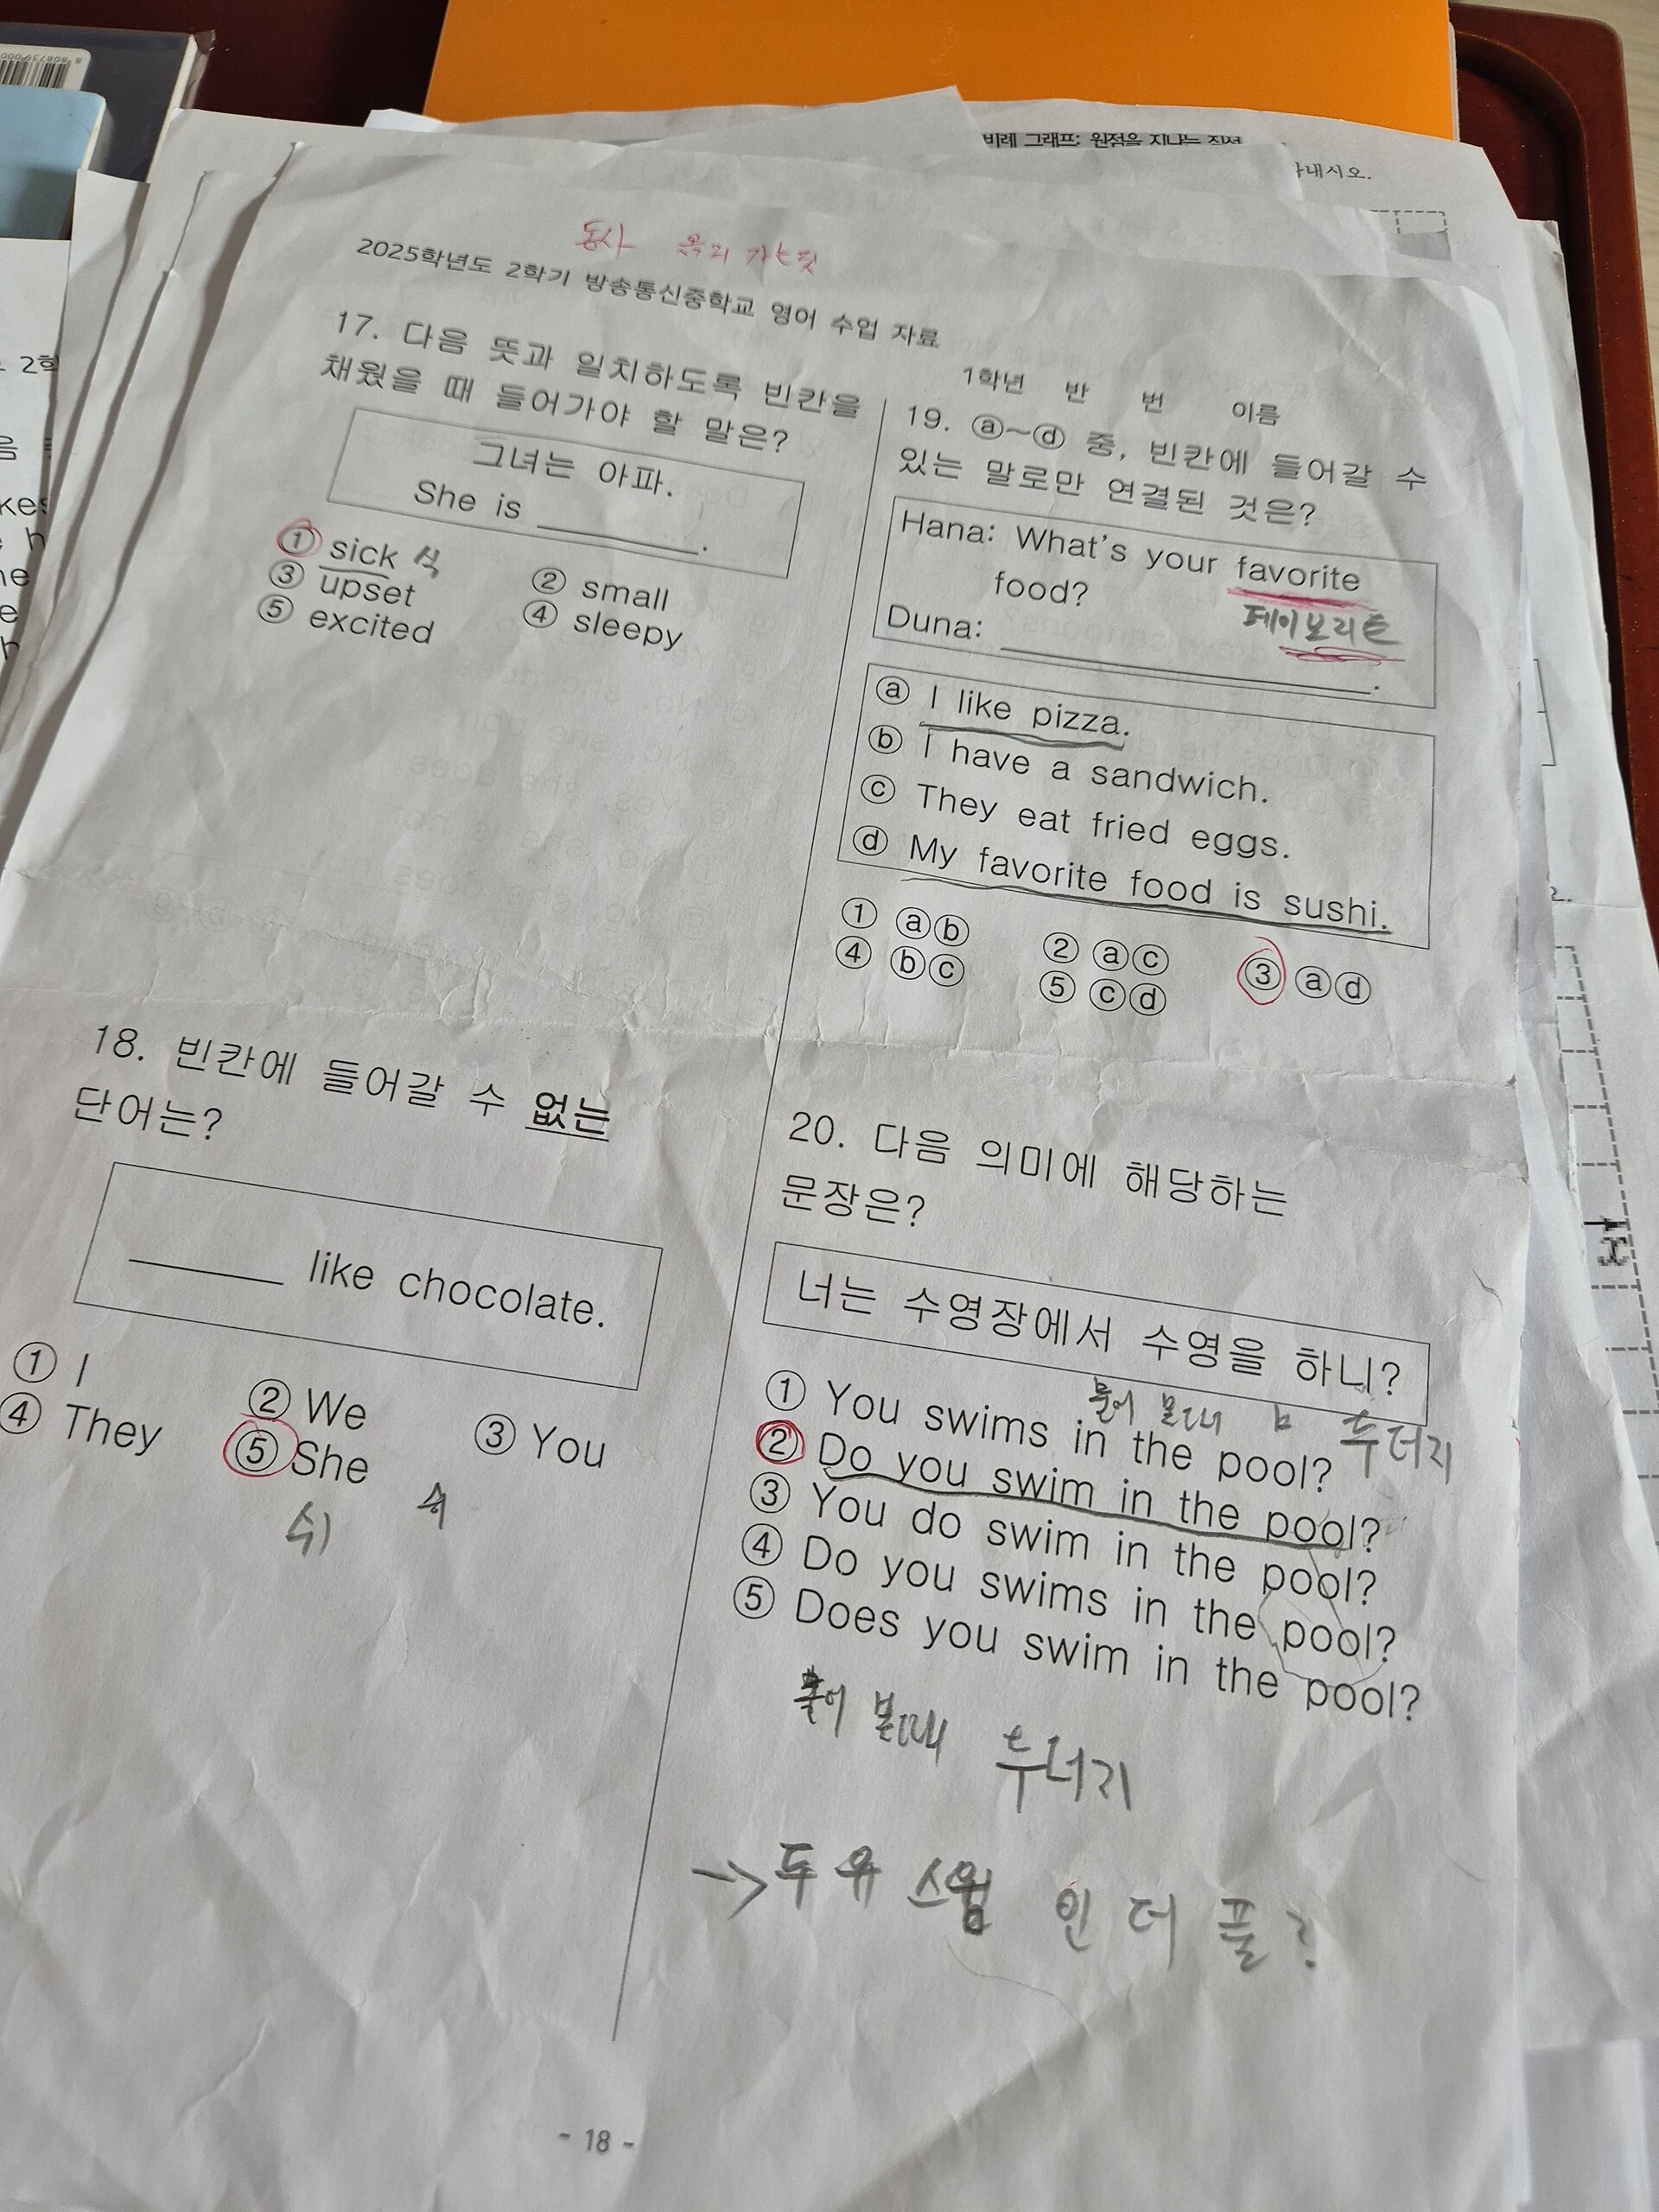 비례 그래프: 원점을 지나는 직선
나내시오.
동사
2025학년도 2학기 방송통신중학교 영어 수업 자료
1학년 반 번 이름
17. 다음 뜻과 일치하도록 빈칸을
채웠을 때 들어가야 할 말은?
그녀는 아파.
She is ________.
① sick 식
② small
③ upset
④ sleepy
⑤ excited
18. 빈칸에 들어갈 수 없는
단어는?
________ like chocolate.
① I
② We
③ You
④ They
⑤ She
쉬 쉬
19. ⓐ~ⓓ 중, 빈칸에 들어갈 수
있는 말로만 연결된 것은?
Hana: What's your favorite
food?
페이보리트
Duna: ________.
ⓐ I like pizza.
ⓑ I have a sandwich.
ⓒ They eat fried eggs.
ⓓ My favorite food is sushi.
① ⓐⓑ
② ⓐⓒ
③ ⓐⓓ
④ ⓑⓒ
⑤ ⓒⓓ
20. 다음 의미에 해당하는
문장은?
너는 수영장에서 수영을 하니?
물어 볼때 두더지
① You swims in the pool?
② Do you swim in the pool?
③ You do swim in the pool?
④ Do you swims in the pool?
⑤ Does you swim in the pool?
물어 볼때 두더지
→ 두 유 스윔 인 더 풀?
- 18 -